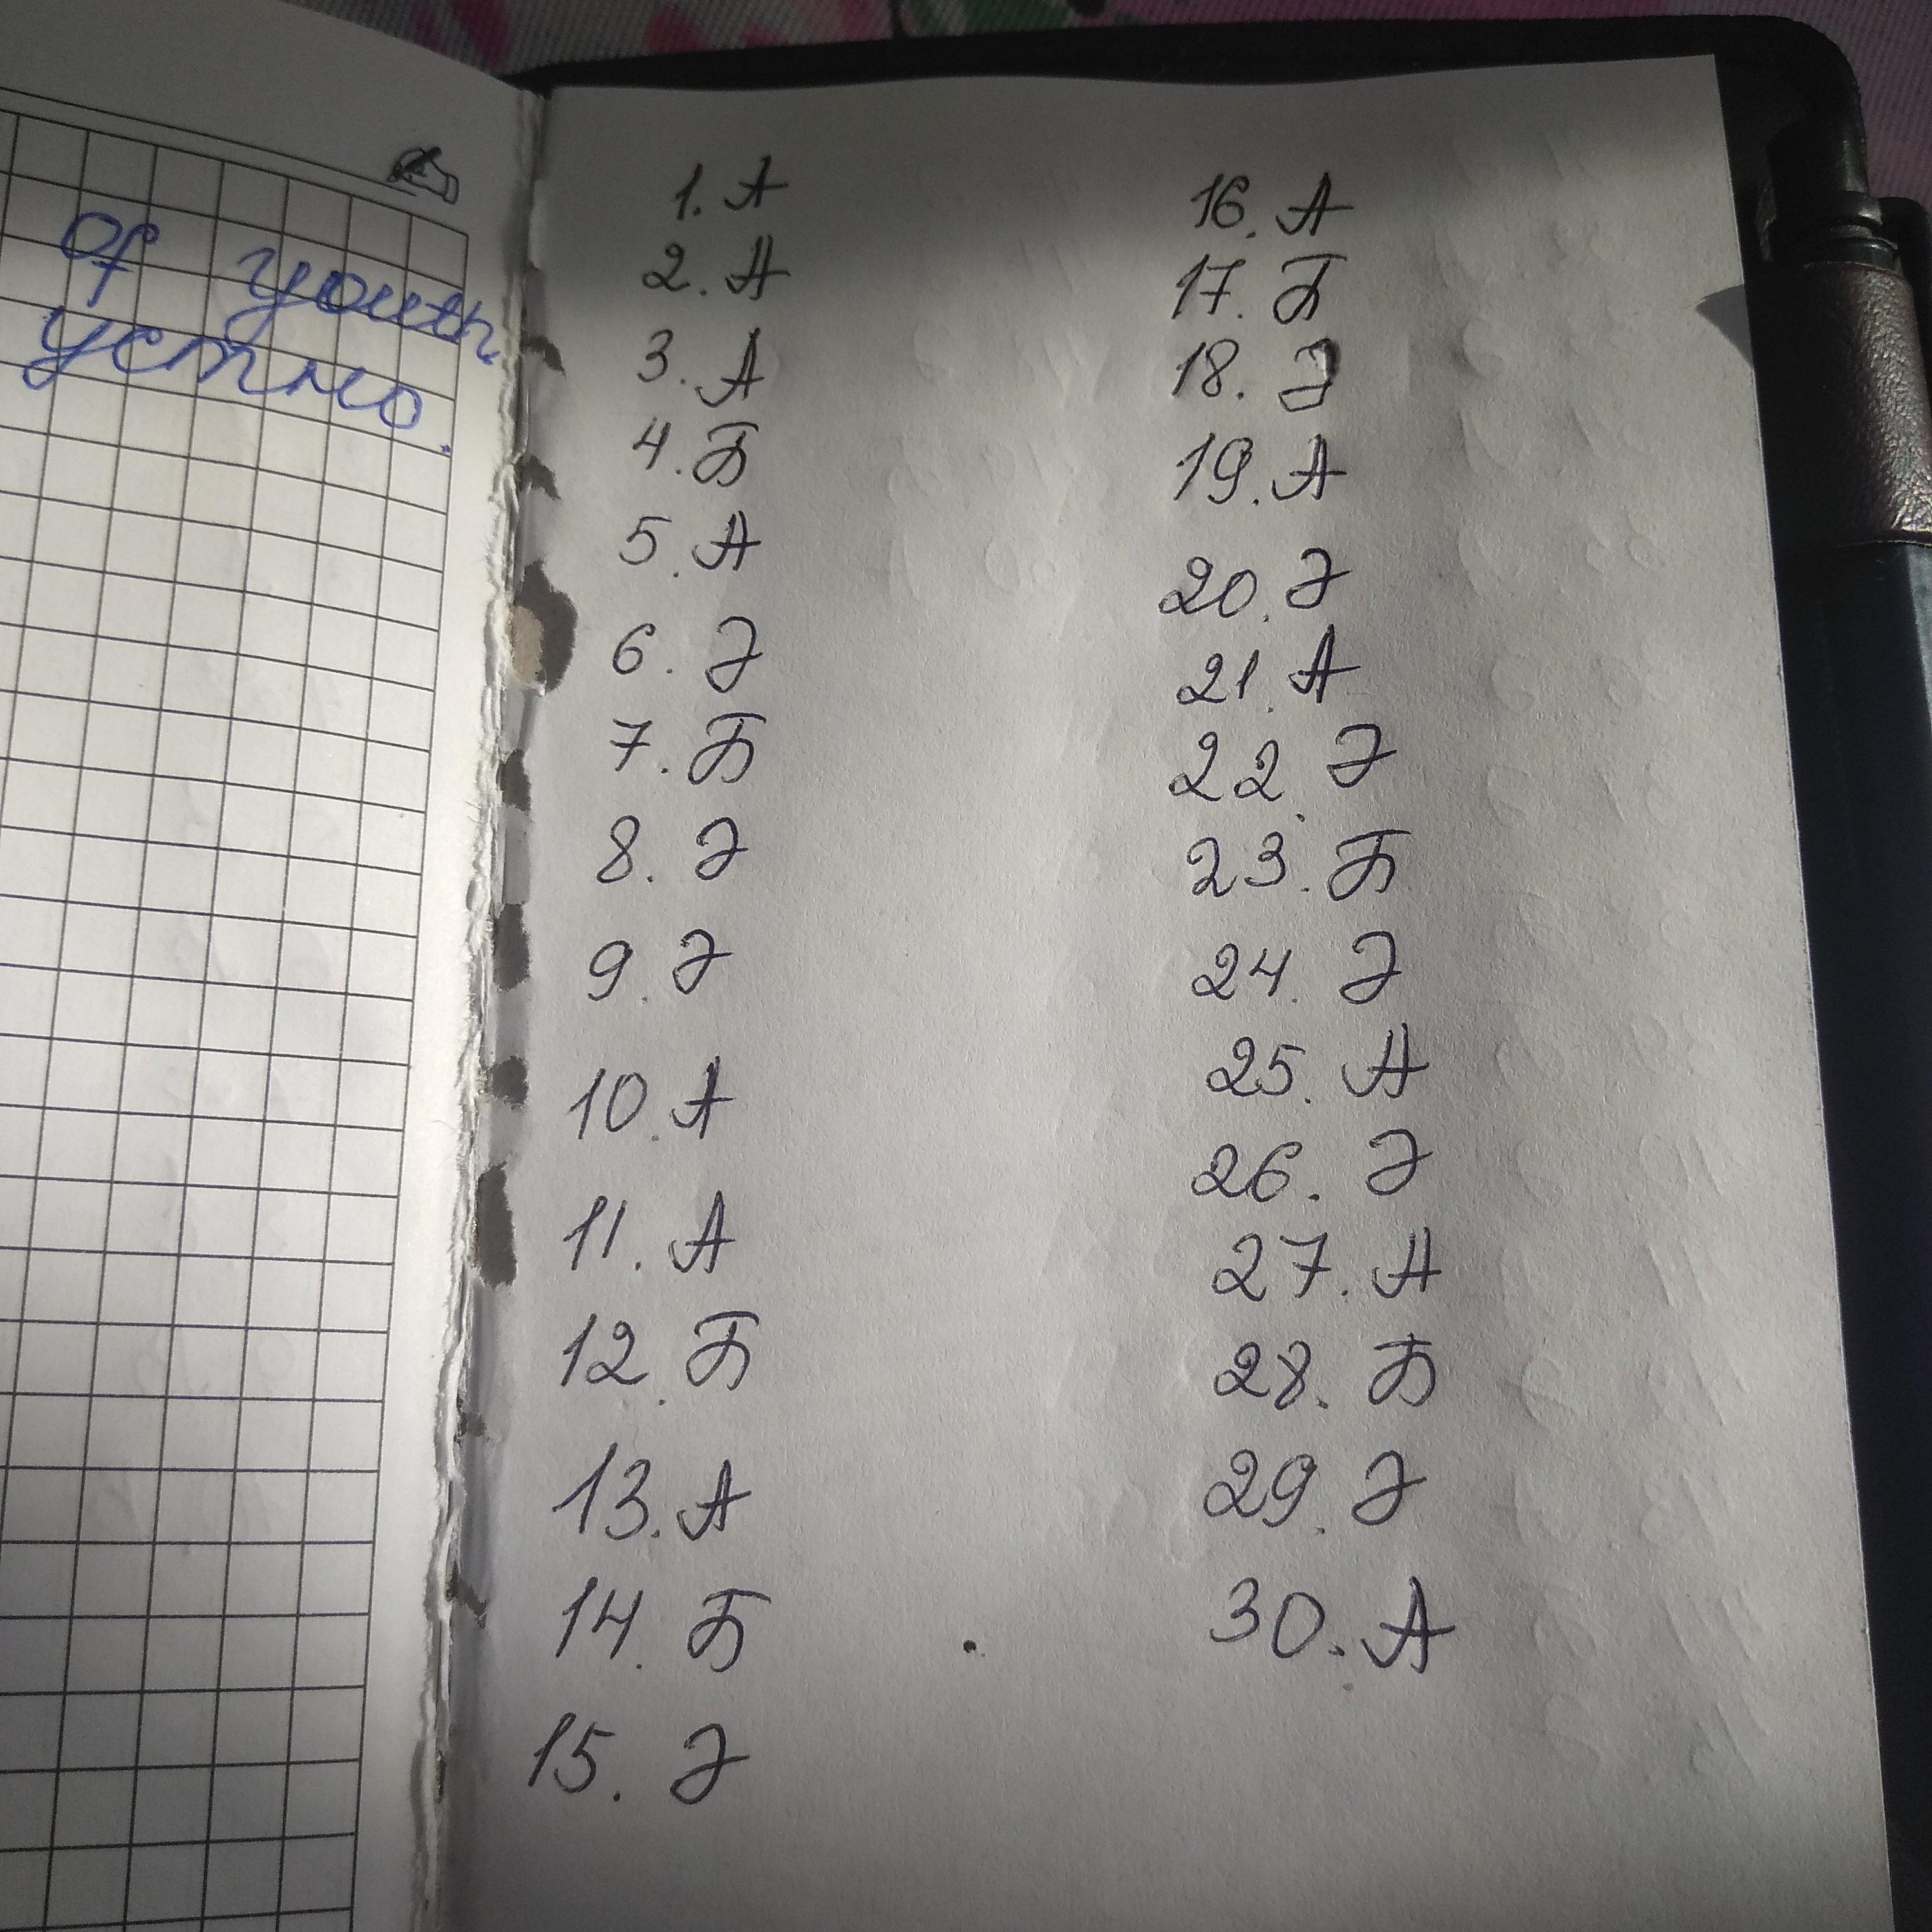 of youth
устно.
1. А
2. А
3. А
4. Б
5. А
6. Ә
7. Б
8. Ә
9. Ә
10. А
11. А
12. Б
13. А
14. Б
15. Ә
16. А
17. Б
18. Ә
19. А
20. Ә
21. А
22. Ә
23. Б
24. Ә
25. А
26. Ә
27. А
28. Б
29. Ә
30. А